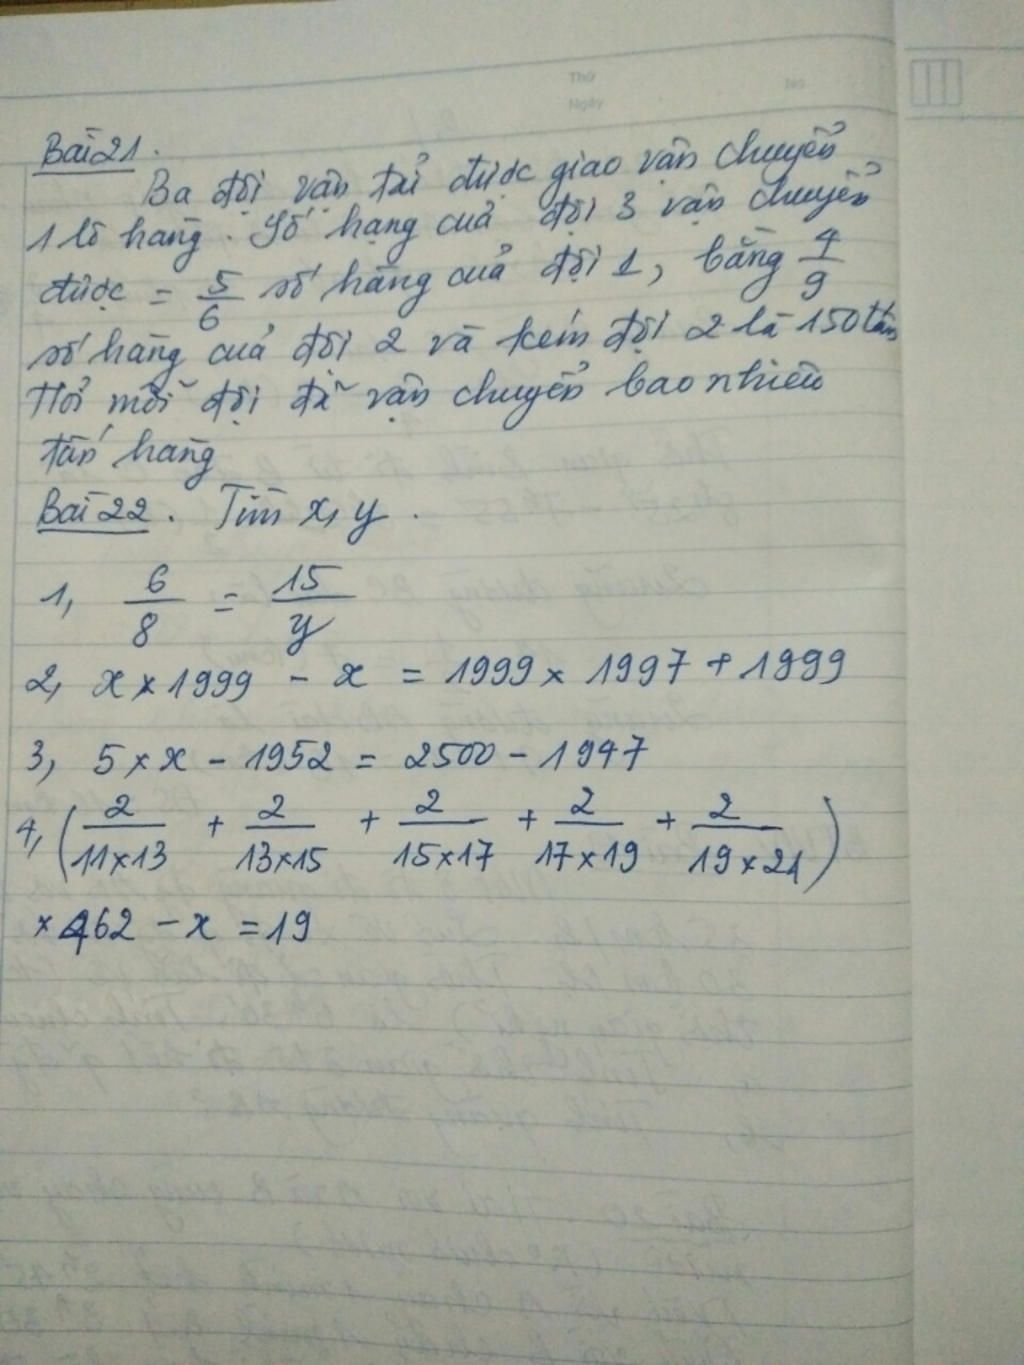 Thứ
No
Ngày
Bài 21.
Ba đội vận tải được giao vận chuyển
1 lô hàng. Số hạng của đội 3 vận chuyển
được = 5/6 số hàng của đội 1, bằng 4/9
số hàng của đội 2 và kém đội 2 là 150 tấn
Hỏi mỗi đội đã vận chuyển bao nhiêu
tấn hàng
Bài 22. Tìm x, y.
1, 6/8 = 15/y
2, x × 1999 - x = 1999 × 1997 + 1999
3, 5 × x - 1952 = 2500 - 1947
4, (2/11×13 + 2/13×15 + 2/15×17 + 2/17×19 + 2/19×21)
× 462 - x = 19